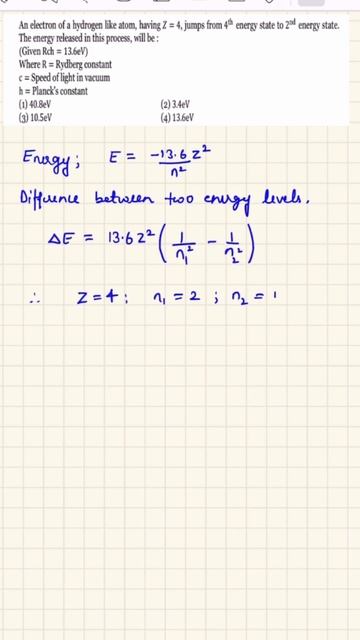 An electron of a hydrogen like atom, having Z = 4, jumps from 4th energy state to 2nd energy state.
The energy released in this process, will be :
(Given Rch = 13.6eV)
Where R = Rydberg constant
c = Speed of light in vacuum
h = Planck's constant
(1) 40.8eV (2) 3.4eV
(3) 10.5eV (4) 13.6eV
Energy; E = -13.6 Z²/n²
Difference between two energy levels.
ΔE = 13.6 Z² (1/n₁² - 1/n₂²)
∴ Z = 4 ; n₁ = 2 ; n₂ =